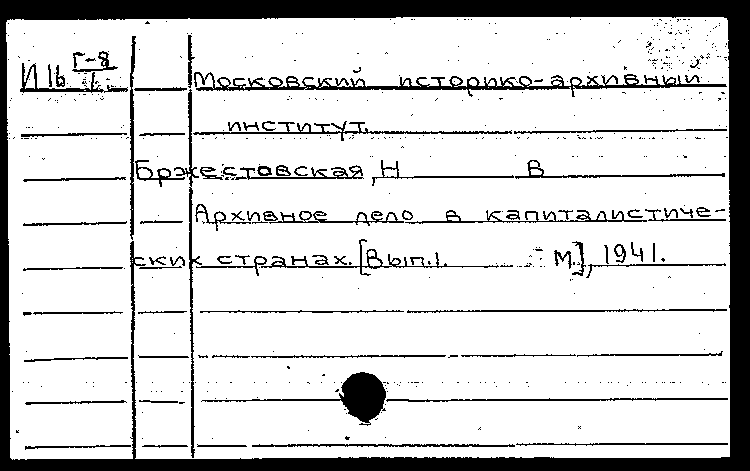 И 16 Г-8
Московский историко-архивный
институт.
Бржестовская, Н В
Архивное дело в капиталистиче-
ских странах. [Вып.1. - М], 1941.